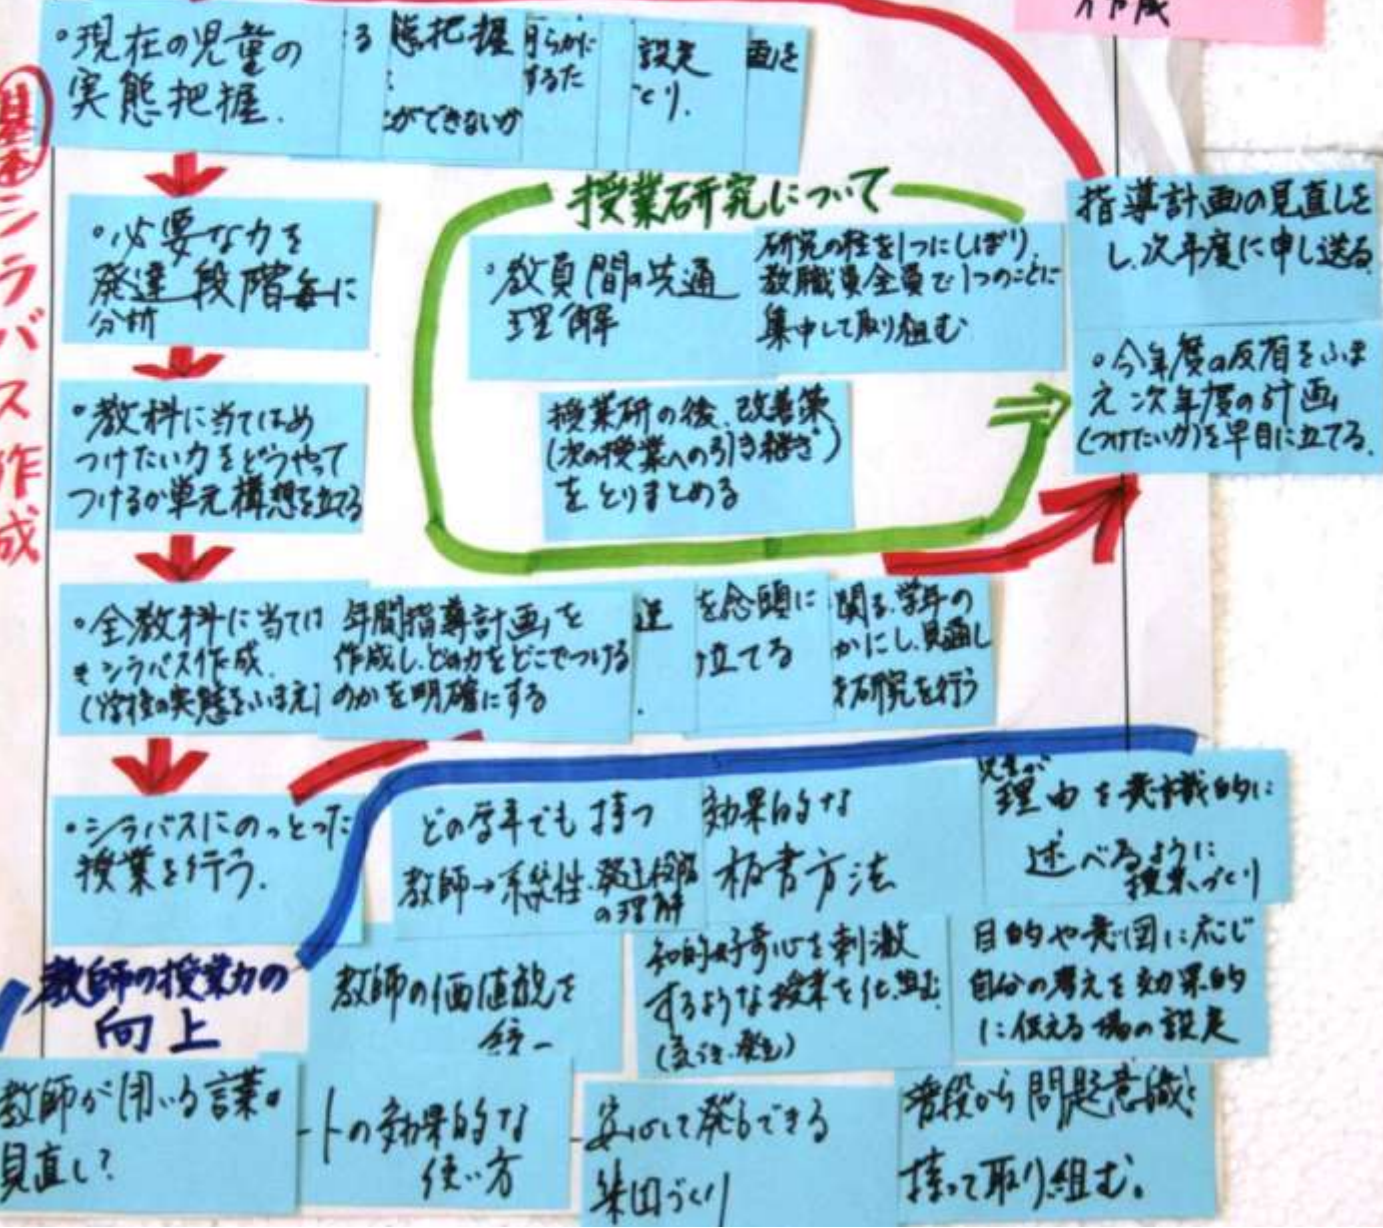 作成
基本
シラバス作成
・現在の児童の
実態把握.
る
態把握
ができないか
明らかに
するた
設定
とり.
画を
・必要な力を
発達段階毎に
分析
・教科に当てはめ
つけたい力をどうやって
つけるか単元構想を立てる
・全教科に当ては
シラバス作成.
(学校の実態をふまえ)
年間指導計画を
作成し、どの力をどこでつける
のかを明確にする
を念頭に
立てる
関る.学年の
かにし、見通し
研究を行う
・シラバスにのっとった
授業を行う.
授業研究について
・教員間の共通
理解
研究の柱を1つにしぼり、
教職員全員で1つのことに
集中して取り組む
授業研の後、改善策
(次の授業への引き継ぎ)
をとりまとめる
指導計画の見直しを
し、次年度に申し送る
・今年度の反省をふま
え次年度の計画
(つけたい力)を早目に立てる.
教師の授業力の
向上
どの学年でも持つ
教師→系統性.発達段階
の理解
効果的な
板書方法
児童が
理由を意識的に
述べるように
授業づくり
教師の価値観を
統一
知的好奇心を刺激
するような授業を仕組む
目的や意図に応じ
自分の考えを効果的
に伝える場の設定
教師が用いる言葉の
見直し?
トの効果的な
使い方
安心して発言できる
集団づくり
普段から問題意識を
持って取り組む。